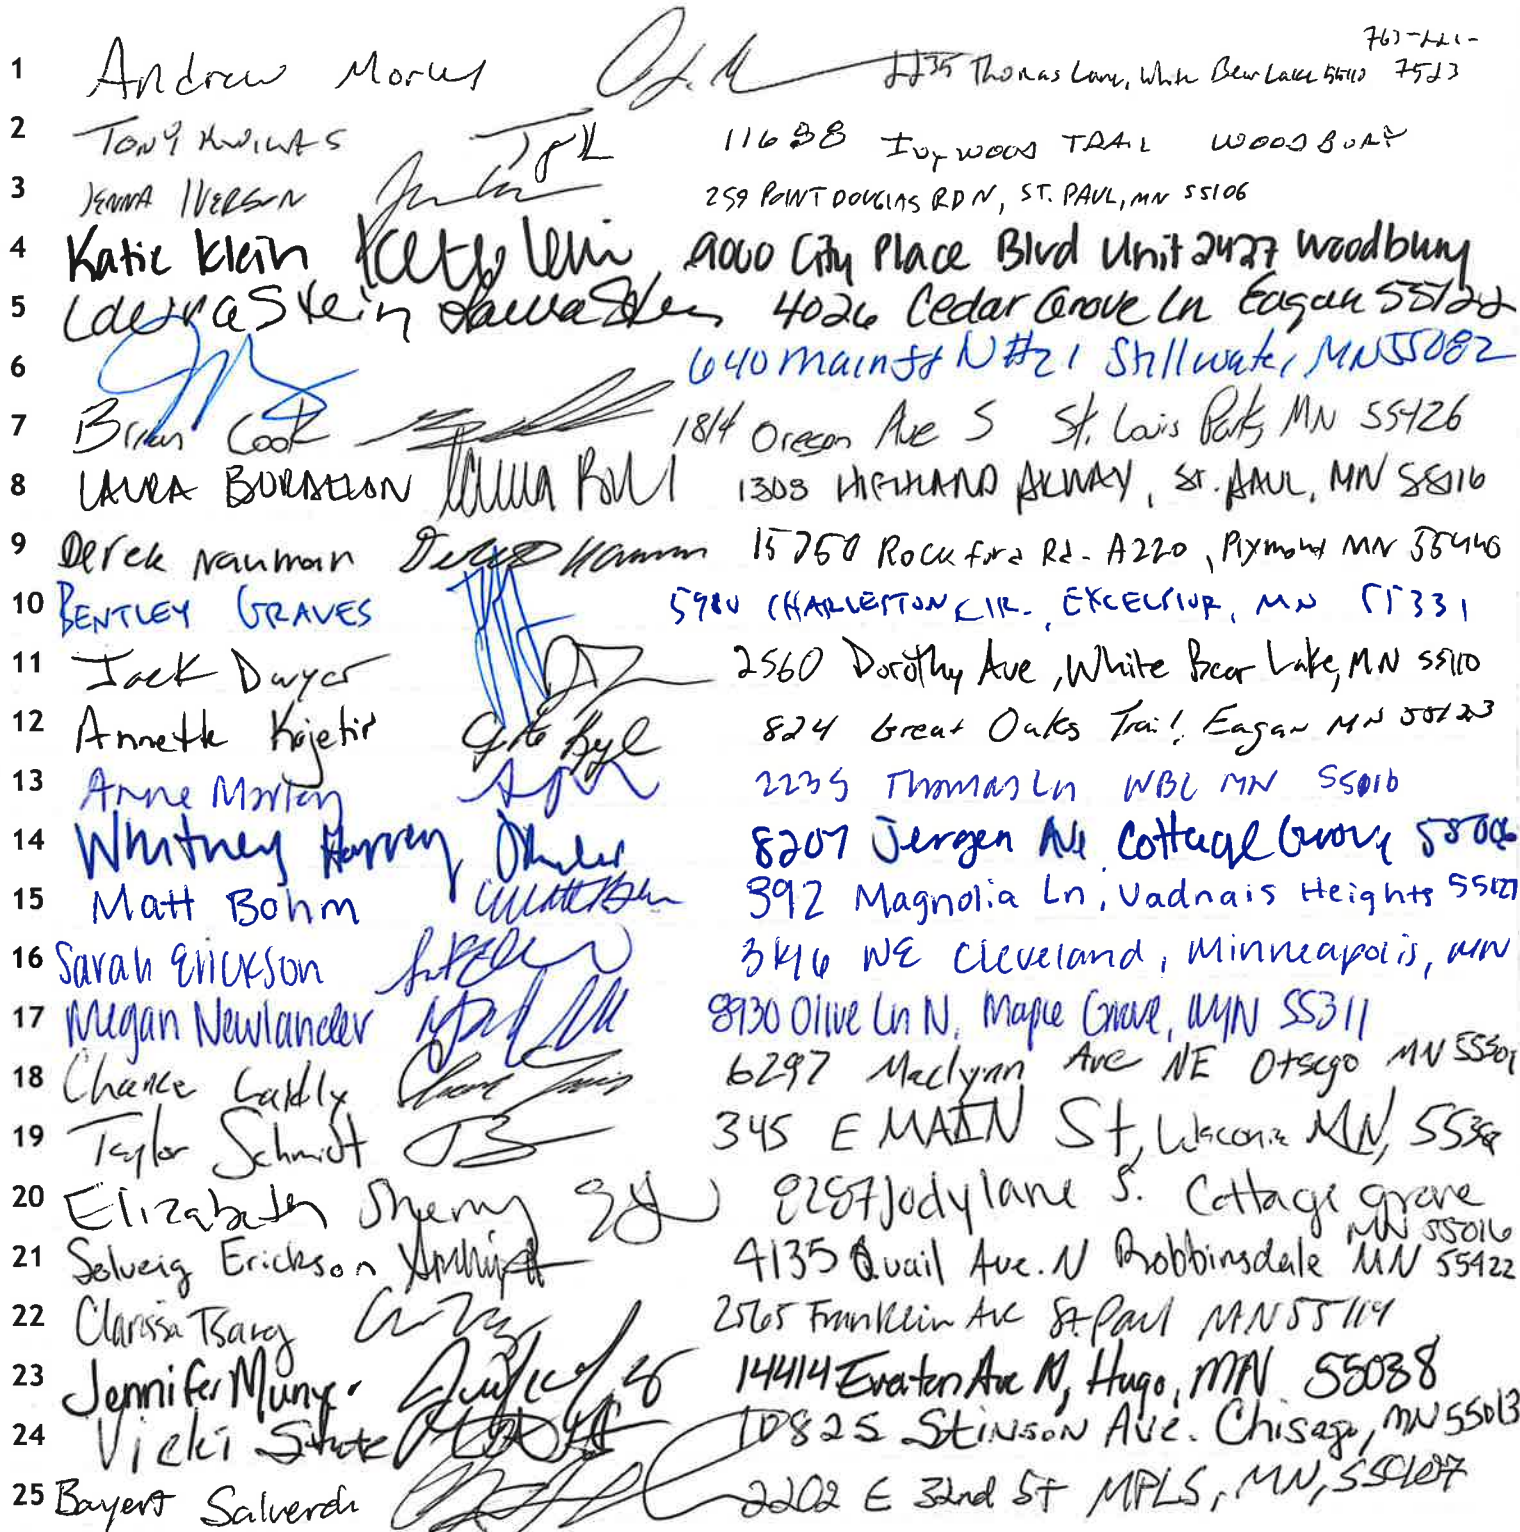 763-221-
1 Andrew Morley 2235 Thomas Lane, White Bear Lake 55110 7523
2 Tony 11688 Ivywood TRAIL WOODBURY
3 JENNA IVERSON 259 POINT DOUGLAS RD N, ST. PAUL, MN 55106
4 Katie Klein Katie Klein 9000 City Place Blvd Unit 2427 Woodbury
5 Laura Stein Laura Stein 4026 Cedar Grove Ln Eagan 55122
6 640 Main St N #21 Stillwater, MN 55082
7 Brian Cook 1814 Oregon Ave S St. Louis Park, MN 55426
8 LAURA 1303 HIGHLAND PKWAY, ST. PAUL, MN 55116
9 Derek Nauman Derek Nauman 15250 Rockford Rd. A220, Plymouth MN 55446
10 BENTLEY GRAVES 5980 CHARLESTON CIR. EXCELSIOR, MN 55331
11 Jack Dwyer 2560 Dorothy Ave, White Bear Lake, MN 55110
12 Annette Kojetin 824 Great Oaks Trail Eagan MN 55123
13 Anne Morley 2235 Thomas Ln WBL MN 55010
14 Whitney Harvey 8207 Jergen Ave Cottage Grove 55016
15 Matt Bohm Matt Bohm 392 Magnolia Ln, Vadnais Heights 55127
16 Sarah Erickson NE Cleveland, Minneapolis, MN
17 Megan Newlander 8930 Olive Ln N, Maple Grove, MN 55311
18 Chance 6297 Maclynn Ave NE Otsego MN
19 Taylor Schmidt 345 E MAIN St, Waconia MN,
20 Elizabeth Sherry 8287 Jody lane S. Cottage grove
MN 55016
21 Solveig Erickson 4135 Quail Ave. N Robbinsdale MN 55422
22 Clarissa Tsang 2565 Franklin Ave St. Paul MN 55114
23 Jennifer 14414 Everton Ave N, Hugo, MN 55038
24 Vicki 10825 Stinson Ave. Chisago, MN 55013
25 Bayert 2202 E 32nd St MPLS, MN,